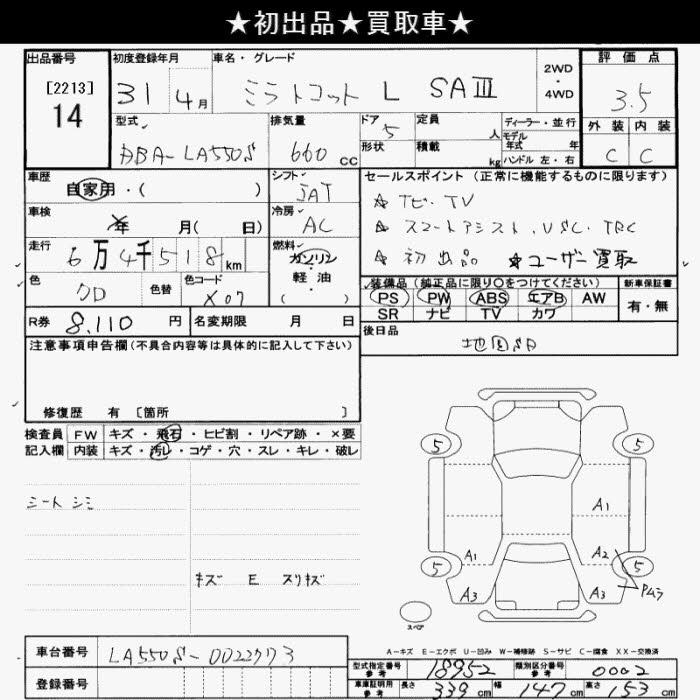 ★初出品★買取車★
出品番号 初度登録年月 車名・グレード 2WD・4WD 評価点
[2213]
14
31年4月 ミラトコット L SAⅢ 3.5
型式 排気量 ドア 定員 人 ディーラー・並行 外装 内装
モデル年式 年
DBA-LA550S 660cc 5 形状 積載 kg ハンドル 左・右 C C
車歴 シフト セールスポイント(正常に機能するものに限ります)
自家用・( ) IAT
☆ ナビ・TV
車検 年 月(日) 冷房 AC
☆ スマートアシスト、VSC・TRC
走行 6万4千518km 燃料 ガソリン・軽油( )
☆ 初出品 ☆ユーザー買取
色 色替 色コード X07
装備品(純正品に限り○をつけてください) 新車保証書
PS PW ABS エアB AW 有・無
SR ナビ TV カワ
R券 8,110円 名変期限 月 日
後日品
注意事項申告欄(不具合内容等は具体的に記入して下さい)
修復歴 有 [箇所 ]
検査員 FW キズ・飛石・ヒビ割・リペア跡・×要
記入欄 内装 キズ・汚レ・コゲ・穴・スレ・キレ・破レ
シート シミ
キズ E スリキズ
5 5
A1
A1 A2
5 5
A3 A3 PAラ
スペア
A-キズ E-エクボ U-凹み W-補修跡 S-サビ C-腐食 XX-交換済
車台番号 LA550S-0022773
登録番号
型式指定番号 参考 18952 類別区分番号 参考 0002
車庫証明用 参考 長さ 339cm 幅 147cm 高さ 153cm